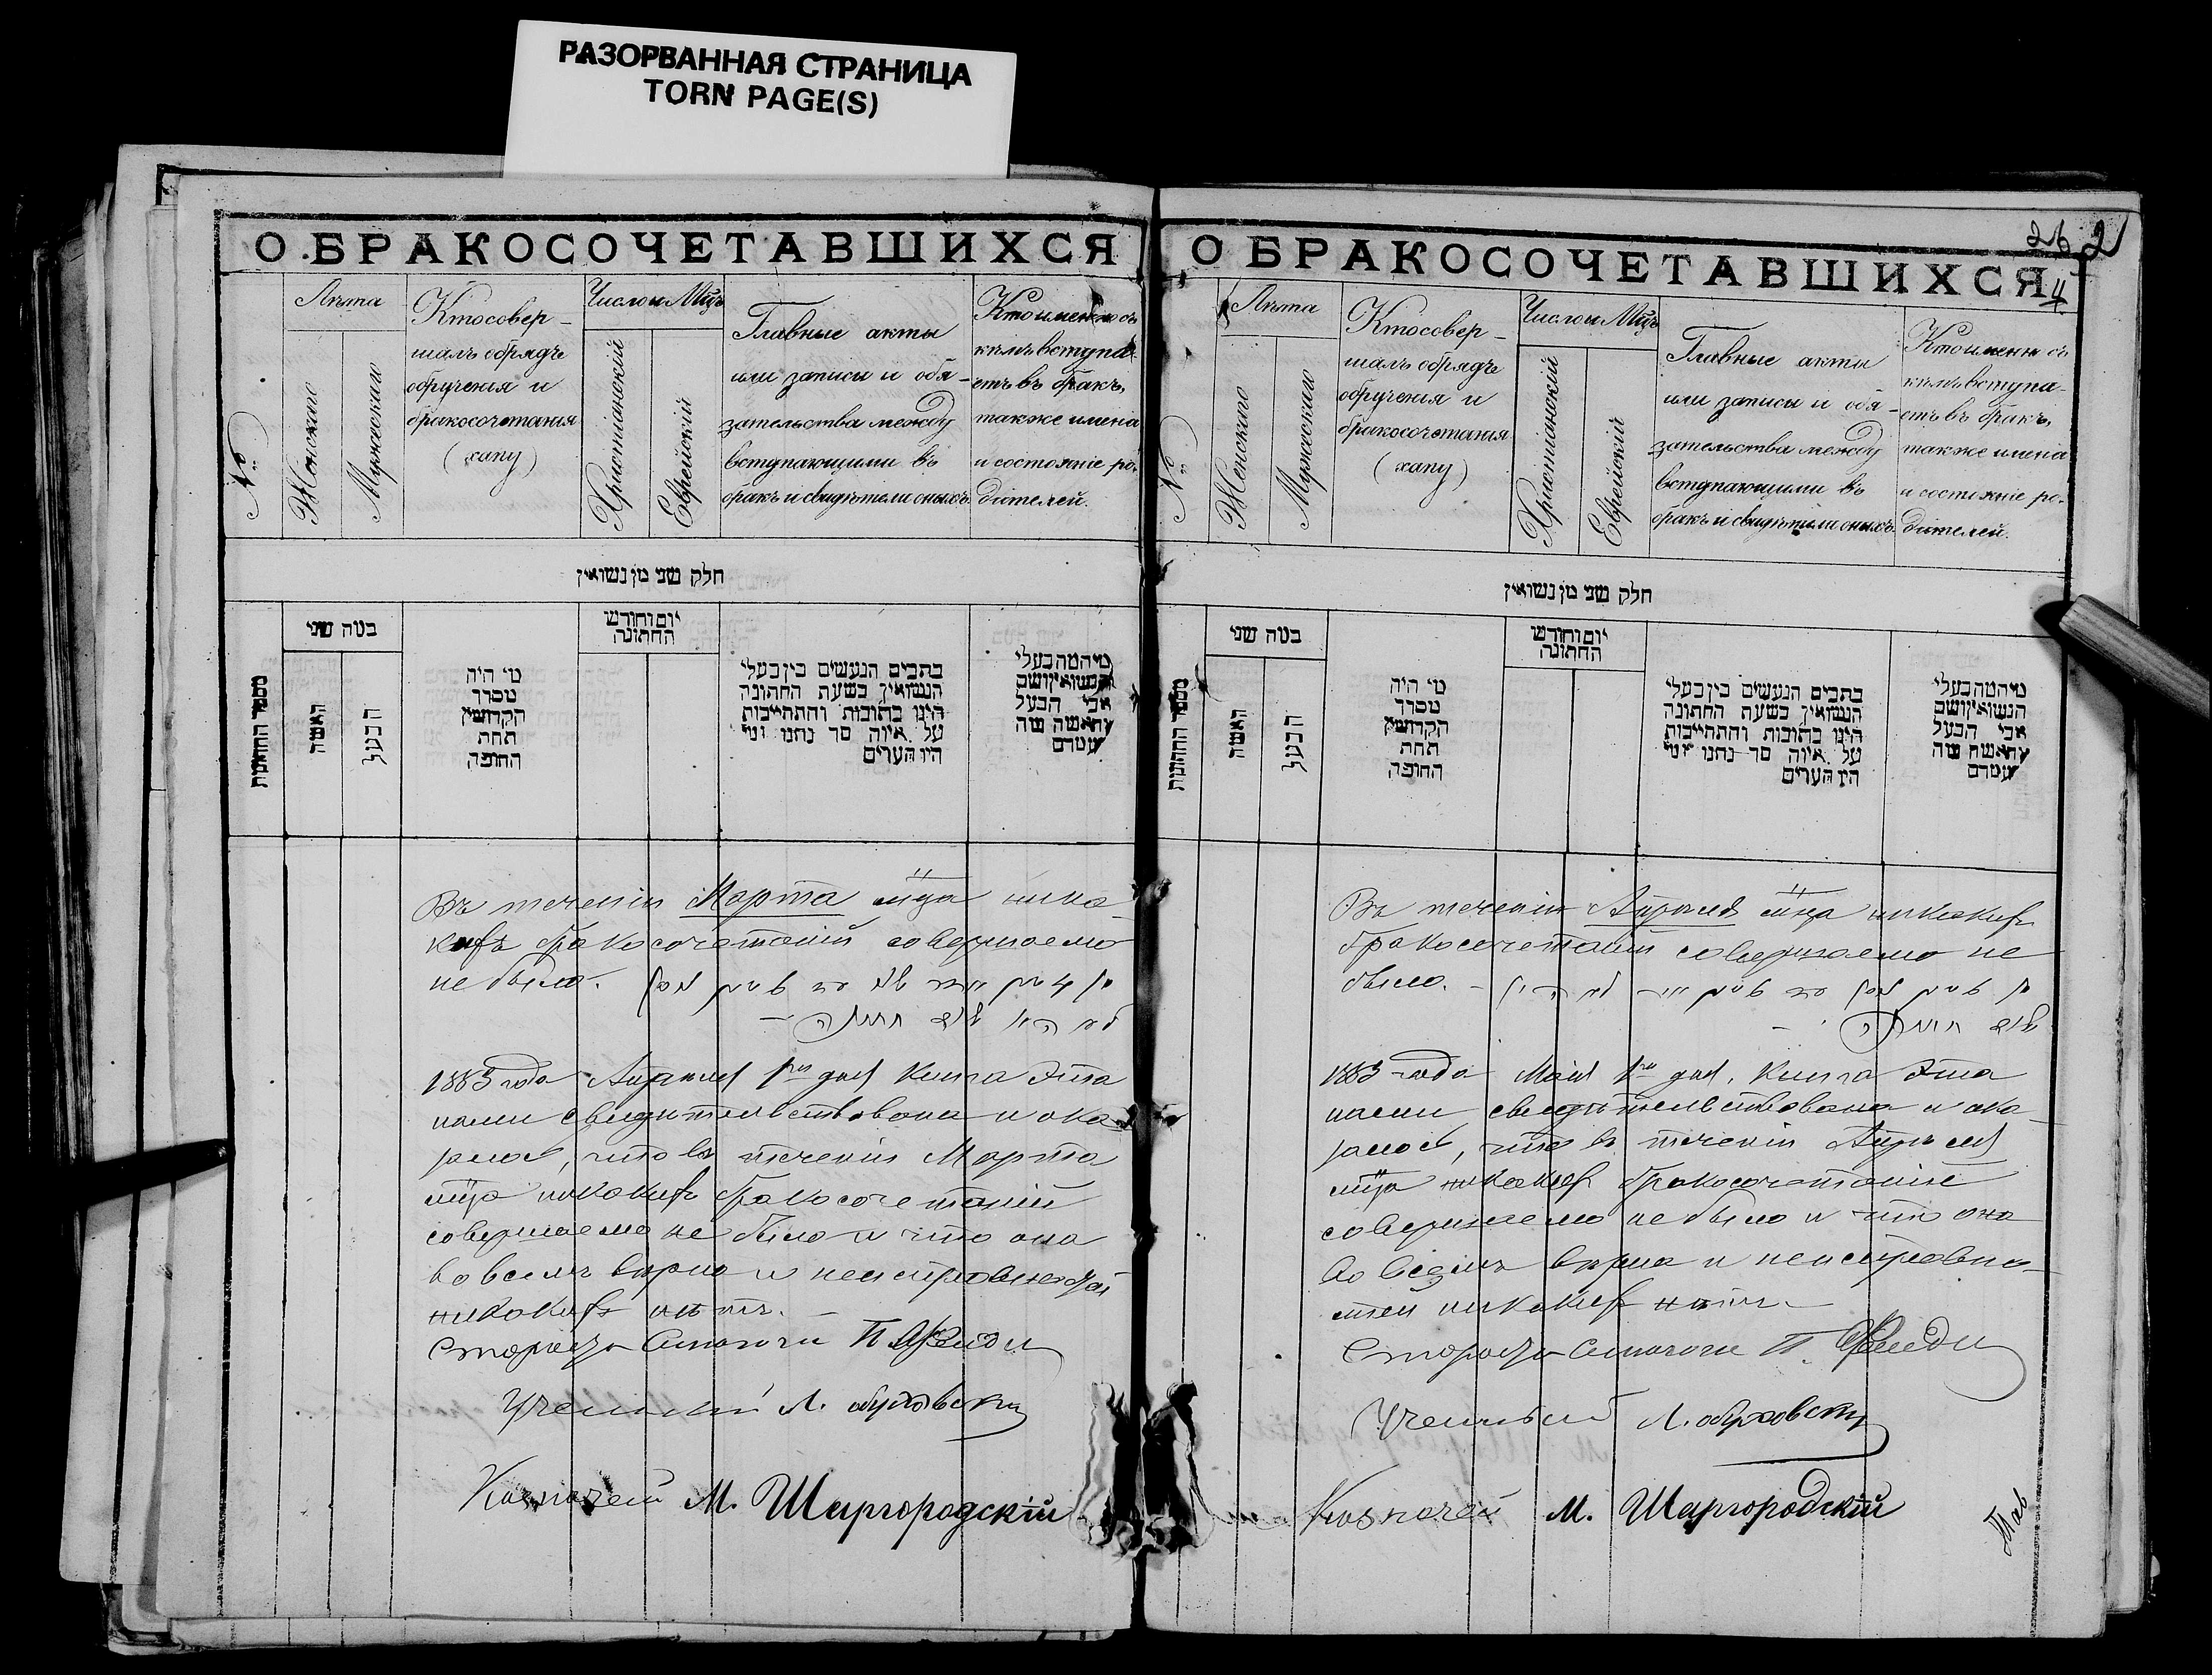 РАЗОРВАННАЯ СТРАНИЦА
TORN PAGE(S)
О БРАКОСОЧЕТАВШИХСЯ
№
Лѣта
Женскаго
Мужескаго
Кто совер-
шалъ обрядъ
обрученія и
бракосочетанія
(хапу)
Число и Мцъ
Христіанскій
Еврейскій
Главные акты
или записи и обя-
зательства между
вступающими въ
бракъ и свидѣтели оныхъ.
Кто именно съ
кѣмъ вступа-
етъ въ бракъ,
также имена
и состояніе ро-
дителей.
חלק שני מן נשואין
מספר החתונות
כמה שני
האשה
הבעל
מי היה
מסדר
הקדושין
תחת
החופה
יום וחודש
החתונה
כתבים הנעשים בין בעלי
הנשואין בשעת החתונה
היינו כתובות והתחייבות
על איזה סך נתנו ומי
היו העדים
מי המה בעלי
הנשואין ושם
אבי הבעל
והאשה ומה
מעמדם
Въ теченіи Марта мца ника-
кихъ бракосочетаній совершаемо
не было.
1883 года Апрѣля 1го дня книга эта
нами свидѣтельствована и ока-
залось, что въ теченіи Марта
мца никакихъ бракосочетаній
совершаемо не было и что она
во всемъ вѣрна и неисправностей
никакихъ нѣтъ.
Староста Синагоги П.
Ученый Л. Обуховскій
Казначей М. Шаргородскій
26 2
О БРАКОСОЧЕТАВШИХСЯ
4
№
Лѣта
Женскаго
Мужескаго
Кто совер-
шалъ обрядъ
обрученія и
бракосочетанія
(хапу)
Число и Мцъ
Христіанскій
Еврейскій
Главные акты
или записи и обя-
зательства между
вступающими въ
бракъ и свидѣтели оныхъ.
Кто именно съ
кѣмъ вступа-
етъ въ бракъ,
также имена
и состояніе ро-
дителей.
חלק שני מן נשואין
מספר החתונות
כמה שני
האשה
הבעל
מי היה
מסדר
הקדושין
תחת
החופה
יום וחודש
החתונה
כתבים הנעשים בין בעלי
הנשואין בשעת החתונה
היינו כתובות והתחייבות
על איזה סך נתנו ומי
היו העדים
מי המה בעלי
הנשואין ושם
אבי הבעל
והאשה ומה
מעמדם
Въ теченіи Апрѣля мца никакихъ
бракосочетаній совершаемо не
было.
1883 года Мая 1го дня, книга эта
нами свидѣтельствована и ока-
залось, что въ теченіи Апрѣля
мца никакихъ бракосочетаній
совершаемо не было и что она
во всемъ вѣрна и неисправно-
стей никакихъ нѣтъ.
Староста Синагоги П.
Ученый Л. Обуховскій
Казначей М. Шаргородскій